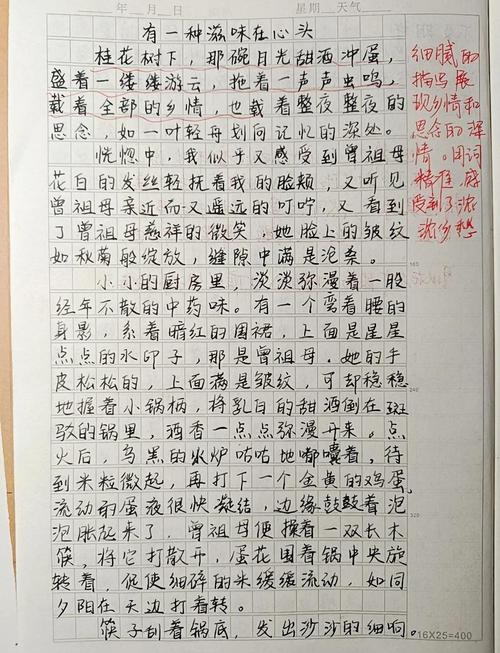 年 月 日 星期 天气
有一种滋味在心头
桂花树下，那碗月光甜酒冲蛋，
盛着一缕缕游云，拖着一声声虫鸣，
载着全部的乡情，也载着整夜整夜的
思念，如一叶轻舟划向记忆的深处。
恍惚中，我似乎又感受到曾祖母
花白的发丝轻抚着我的脸颊，又听见
曾祖母亲近而又遥远的叮咛，又看到
了曾祖母慈祥的微笑，她脸上的皱纹
如秋菊般绽放，缝隙中满是沧桑。
小小的厨房里，淡淡弥漫着一股
经年不散的中药味。有一个弯着腰的
身影，系着暗红的围裙，上面是星星
点点的水印子，那是曾祖母。她的手
皮松松的，上面满是皱纹，可却稳稳
地握着小锅柄，将乳白的甜酒倒在斑
驳的锅里，酒香一点点弥漫开来。点
火后，乌黑的水炉咕咕地嘟囔着，待
到米粒微起，再打下一个金黄的鸡蛋，
流动的蛋液很快凝结，边缘鼓鼓着泡
泡胀起来了，曾祖母便操着一双长木
筷，将它打散开，蛋花围着锅中央旋
转着，促使细碎的米缓缓流动，如同
夕阳在天边打着转。
筷子刮着锅底，发出沙沙的细响。
细腻的
描写展
现乡情和
思念的深
情。用词
精准，感
受到了浓
浓乡愁
160
240
16X25=400